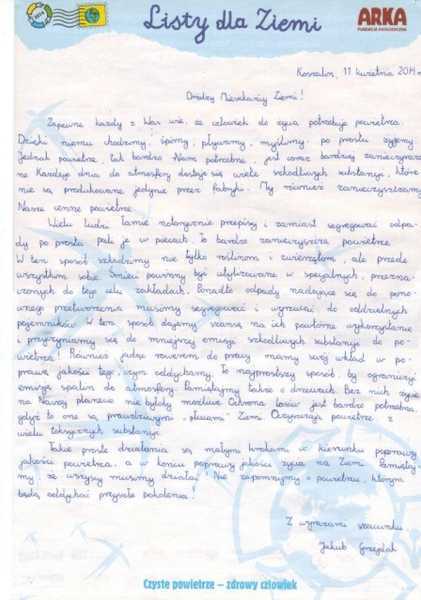 Listy dla Ziemi
ARKA
FUNDACJA EKOLOGICZNA
Koszalin, 11 kwietnia 2014 r.
Drodzy Mieszkańcy Ziemi!
Zapewne każdy z Was wie, że człowiek do życia potrzebuje powietrza.
Dzięki niemu chodzimy, śpimy, pływamy, myślimy, po prostu żyjemy.
Jednak powietrze, tak bardzo Nam potrzebne, jest coraz bardziej zanieczyszcza-
ne. Każdego dnia do atmosfery dostaje się wiele szkodliwych substancji, które
nie są produkowane jedynie przez fabryki. My również zanieczyszczamy
Nasze cenne powietrze.
Wielu ludzi łamie notorycznie przepisy i zamiast segregować odpa-
dy po prostu pali je w piecach. To bardzo zanieczyszcza powietrze.
W ten sposób szkodzimy nie tylko roślinom i zwierzętom, ale przede
wszystkim sobie. Śmieci powinny być utylizowane w specjalnych, przezna-
czonych do tego celu zakładach. Ponadto odpady nadające się do pono-
wnego przetworzenia musimy segregować i wyrzucać do oddzielnych
pojemników. W ten sposób dajemy szansę na ich powtórne wykorzystanie
i przyczyniamy się do mniejszej emisji szkodliwych substancji do po-
wietrza! Również jadąc rowerem do pracy mamy swój wkład w po-
prawę jakości tego, czym oddychamy. To najprostszy sposób, by ograniczyć
emisję spalin do atmosfery. Pamiętajmy także o drzewach. Bez nich życie
na Naszej planecie nie byłoby możliwe. Ochrona lasów jest bardzo potrzebna,
gdyż to one są prawdziwymi „płucami” Ziemi. Oczyszczają powietrze z
wielu toksycznych substancji.
Takie proste działania są małymi krokami w kierunku poprawy
jakości powietrza, a w końcu poprawy jakości życia na Ziemi. Pamiętaj-
my, że wszyscy musimy działać! Nie zapominajmy o powietrzu, którym
będą oddychać przyszłe pokolenia!
Z wyrazami szacunku
Jakub
Czyste powietrze – zdrowy człowiek